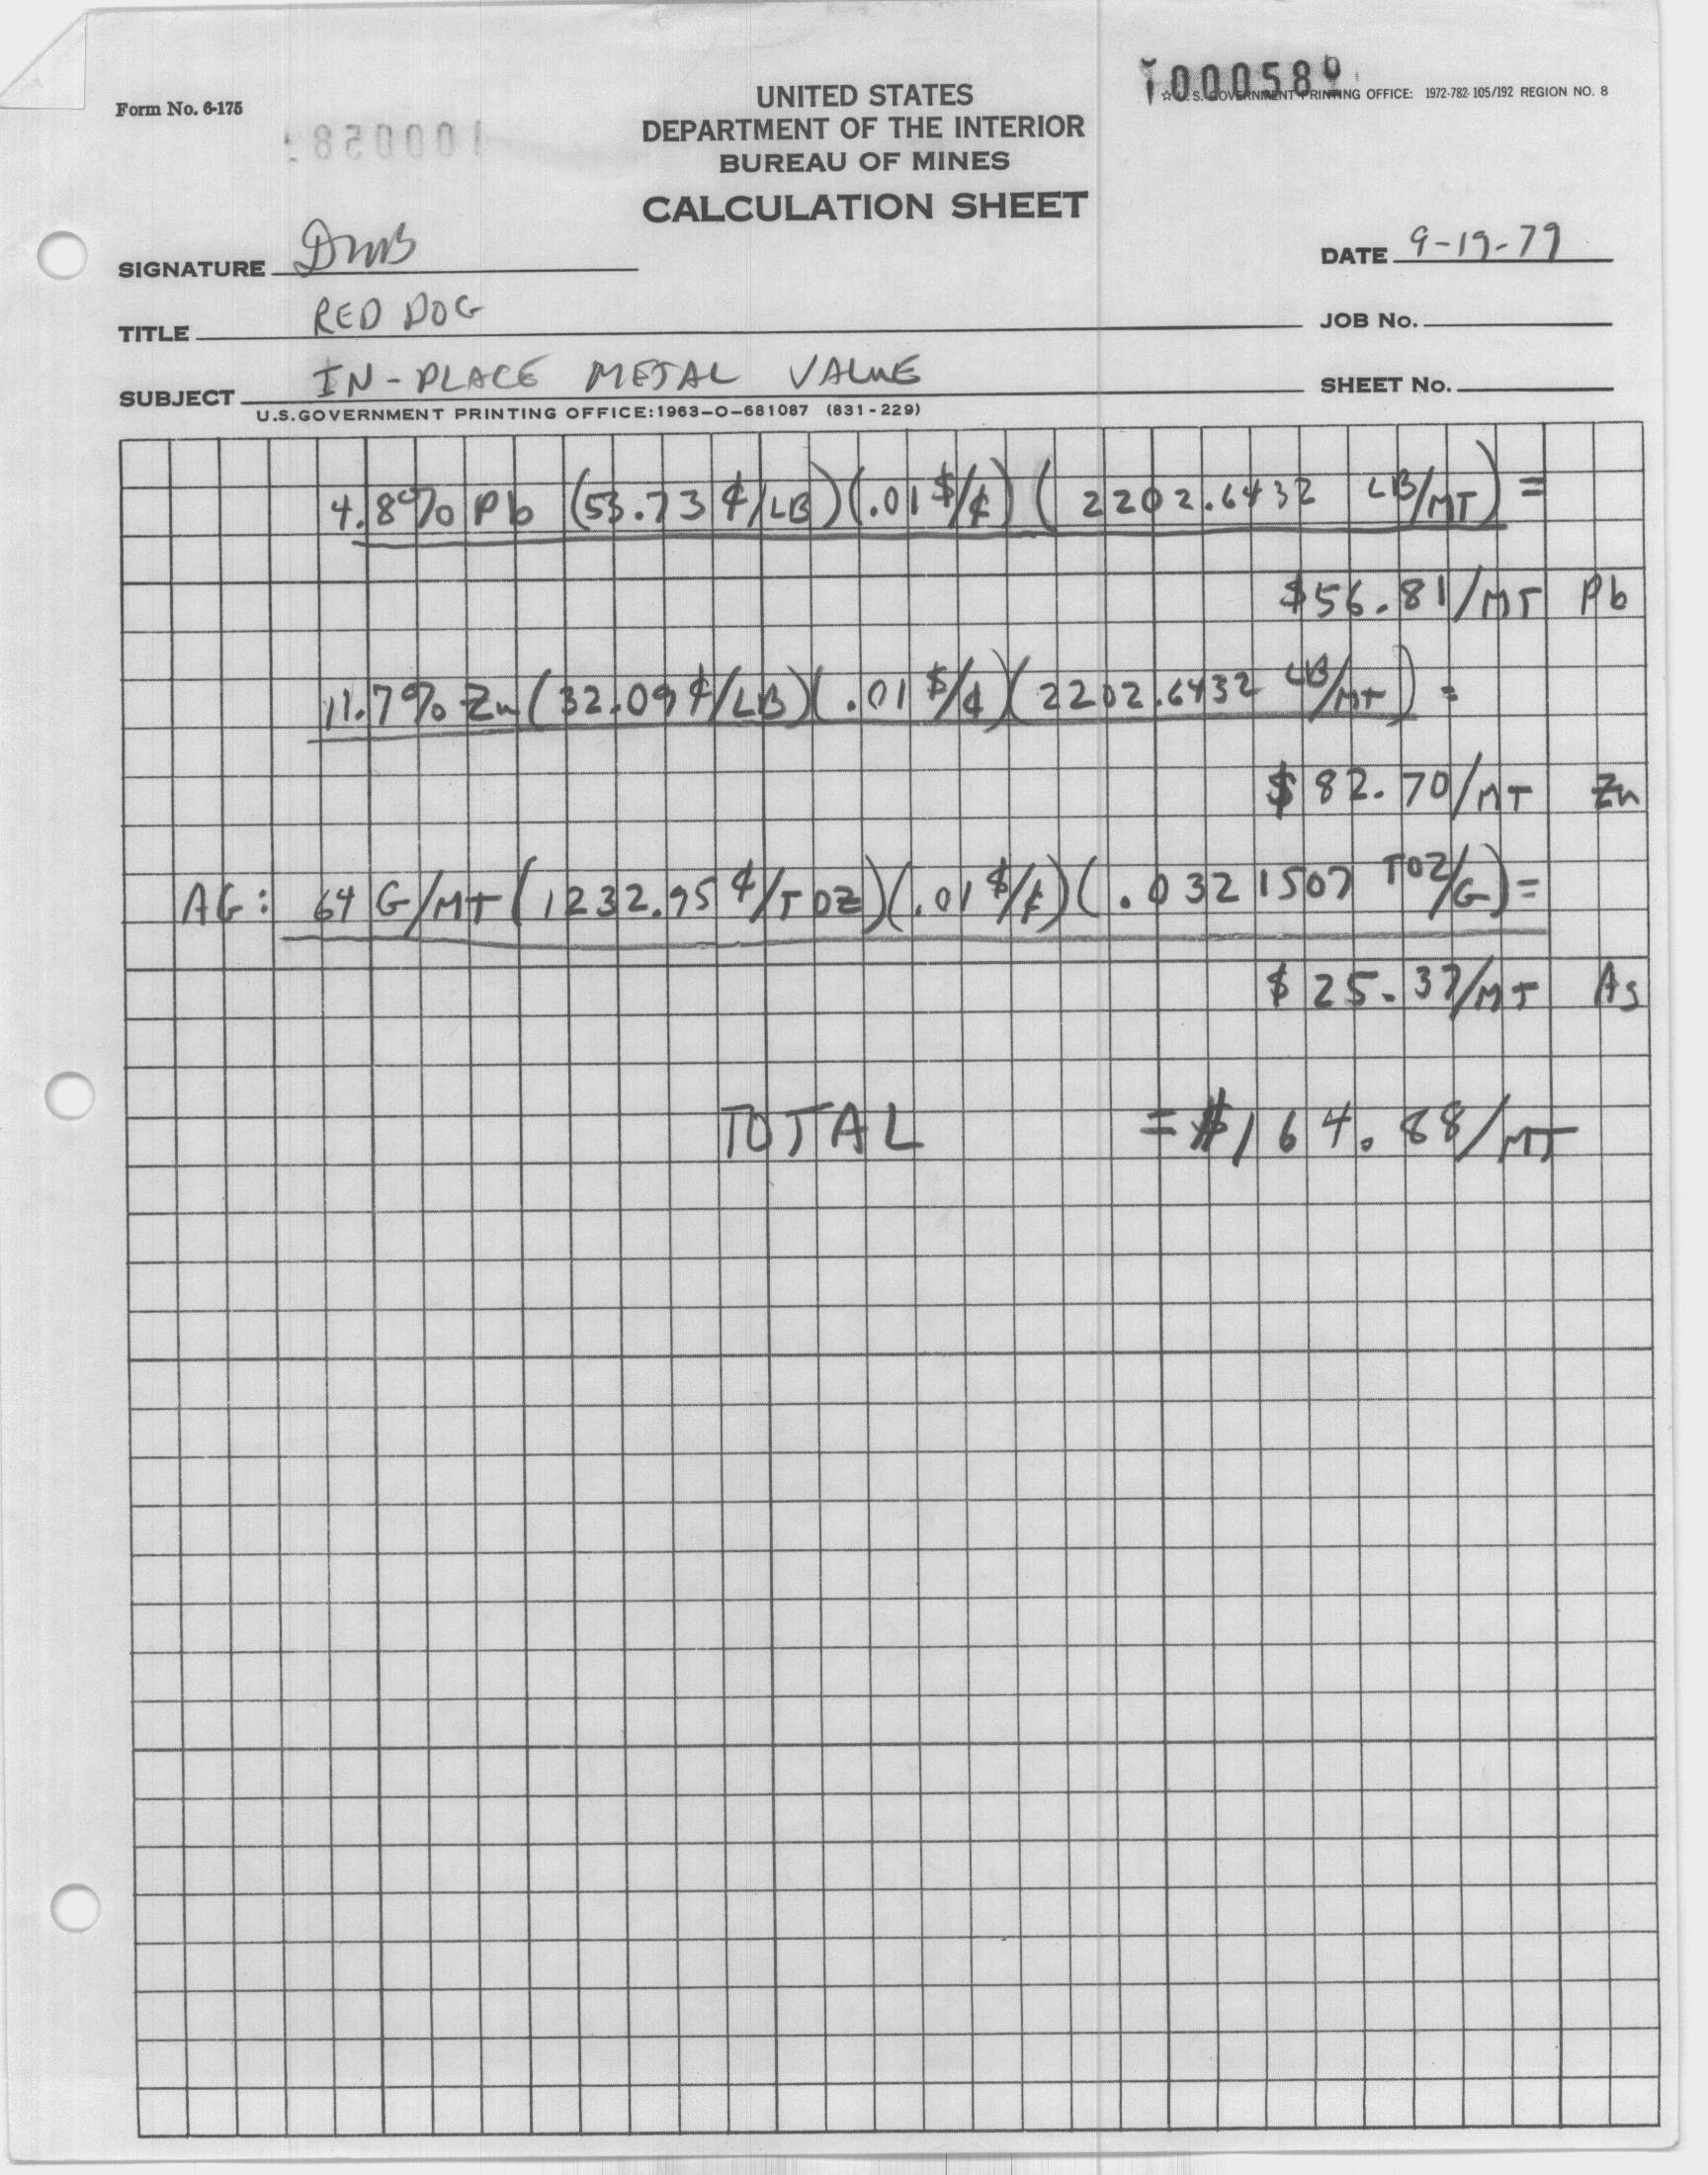 100058
Form No. 6-175
UNITED STATES
DEPARTMENT OF THE INTERIOR
BUREAU OF MINES
CALCULATION SHEET
☆ U.S. GOVERNMENT PRINTING OFFICE: 1972-782-105/192 REGION NO. 8
SIGNATURE DWB
DATE 9-19-79
TITLE RED DOG
JOB No.
SUBJECT IN-PLACE METAL VALUE
SHEET No.
U.S.GOVERNMENT PRINTING OFFICE:1963-O-681087 (831-229)
4.8% Pb (53.73 ¢/LB)(.01 $/¢)(2202.6432 LB/MT) =
$56.81/MT Pb
11.7% Zn (32.09 ¢/LB)(.01 $/¢)(2202.6432 LB/MT) =
$82.70/MT Zn
AG: 64 G/MT (1232.95 ¢/TOZ)(.01 $/¢)(.0321507 TOZ/G) =
$25.37/MT Ag
TOTAL = $164.88/MT